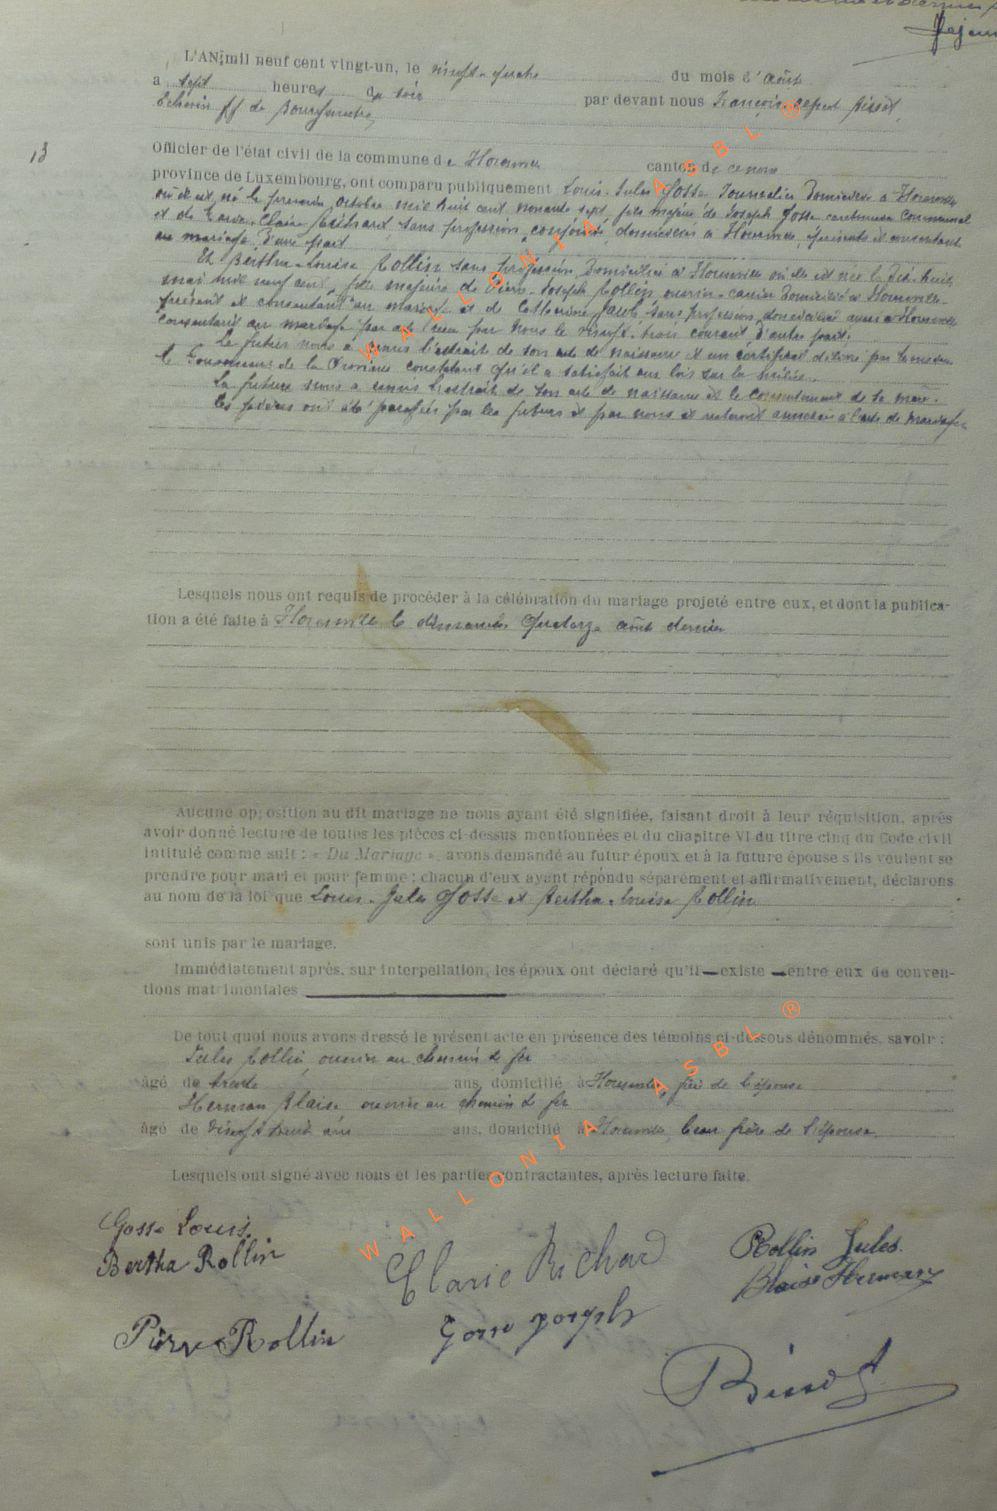 L'AN mil neuf cent vingt-un, le vingt-quatre du mois d'août
a sept heures du soir par devant nous François
Echevin ff de Bourgmestre,
13
Officier de l'état civil de la commune de canton de
province de Luxembourg, ont comparu publiquement Louis-Jules Gosse Journalier domicilié à
où il est né le premier octobre mil huit cent nonante sept, fils majeur de Joseph Gosse cantonnier communal
et de Marie-Claire Richard, sans profession, conjoints, domiciliés à présents et consentant
au mariage, d'une part
Et Bertha-Louise Rollin sans profession, domiciliée à où elle est née le dix-huit
mai mil neuf cent, fille majeure de Pierre-Joseph Rollin ouvrier-carrier domicilié à
présent et consentant au mariage et de Catherine Jacob sans profession, domiciliée aussi à
consentant au mariage par acte reçu par nous le vingt-trois courant d'autre part.
Le futur nous a remis l'extrait de son acte de naissance et un certificat délivré par Monsieur
le Gouverneur de la Province constatant qu'il a satisfait aux lois sur la milice.
La future nous a remis l'extrait de son acte de naissance et le consentement de sa mère.
Ces pièces ont été parafées par les futurs et par nous et resteront annexées à l'acte de mariage.
Lesquels nous ont requis de procéder à la célébration du mariage projeté entre eux, et dont la publica-
tion a été faite à le dimanche quatorze août dernier
Aucune opposition au dit mariage ne nous ayant été signifiée, faisant droit à leur réquisition, après
avoir donné lecture de toutes les pièces ci-dessus mentionnées et du chapitre VI du titre cinq du Code civil
intitulé comme suit : « Du Mariage », avons demandé au futur époux et à la future épouse s'ils veulent se
prendre pour mari et pour femme ; chacun d'eux ayant répondu séparément et affirmativement, déclarons
au nom de la loi que Louis-Jules Gosse et Bertha-Louise Rollin
sont unis par le mariage.
Immédiatement après, sur interpellation, les époux ont déclaré qu'il — existe — entre eux de conven-
tions matrimoniales
De tout quoi nous avons dressé le présent acte en présence des témoins ci-dessous dénommés, savoir :
Jules Rollin, ouvrier au chemin de fer
âgé de trente ans, domicilié à frère de l'épouse
Herman Blaise ouvrier au chemin de fer
âgé de vingt huit ans ans, domicilié à beau frère de l'épouse.
Lesquels ont signé avec nous et les parties contractantes, après lecture faite.
Gosse Louis.
Bertha Rollin
Clarie Richard
Rollin Jules.
Blaise Herman
Pierre Rollin
Gosse Joseph
WALLONIA ASBL ®
WALLONIA ASBL ®